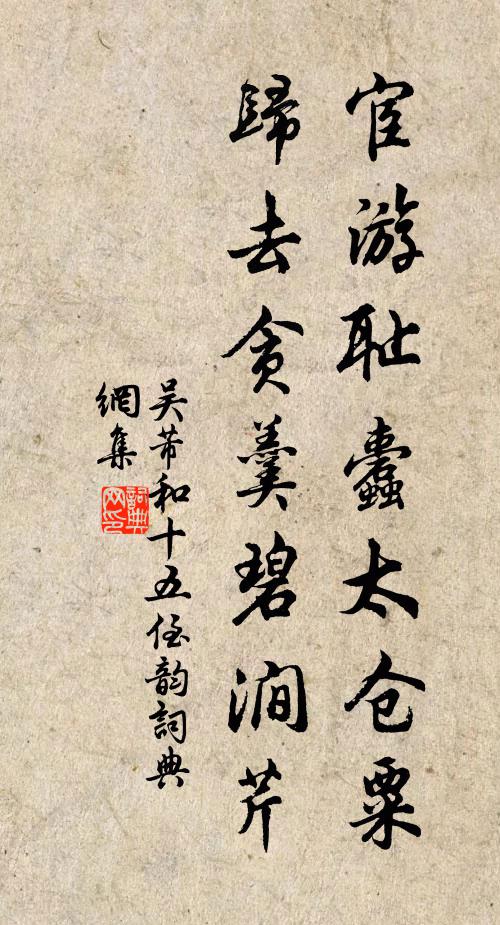 宦游耻蠹太仓粟
歸去貪羹碧澗芹
吴芾和十五侄韵詞典
網集
詞典
网印